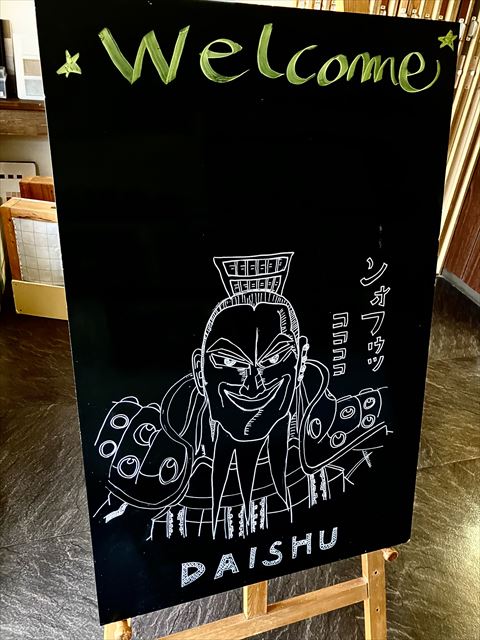 Welcome
ンォフゥッ
ココココ
DAISHU